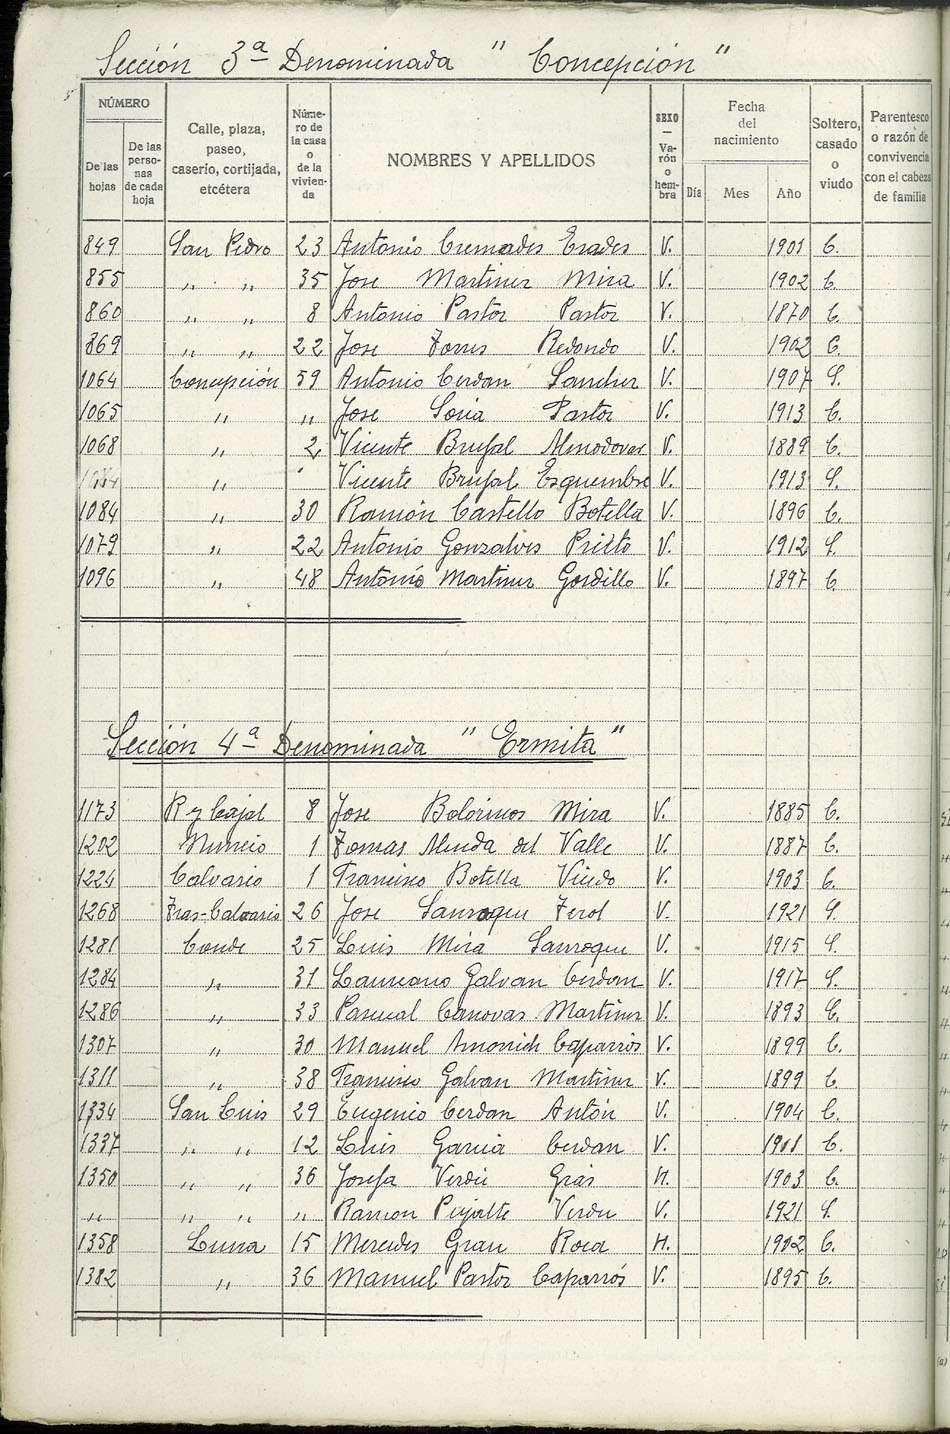 Sección 3ª Denominada " Concepción "
NÚMERO
De las hojas
De las perso-nas de cada hoja
Calle, plaza, paseo, caserío, cortijada, etcétera
Núme-ro de la casa o de la vivien-da
NOMBRES Y APELLIDOS
SEXO — Va-rón o hem-bra
Fecha del nacimiento
Día Mes Año
Soltero, casado o viudo
Parentesco o razón de convivencia con el cabeza de familia
849 San Pedro 23 Antonio Cremades Erades V. 1901 C.
855 " " 35 Jose Martinez Mira V. 1902 C.
860 " " 8 Antonio Pastor Pastor V. 1870 C.
869 " " 22 Jose Torres Redondo V. 1902 C.
1064 Concepción 59 Antonio Cerdan Sanchez V. 1907 S.
1065 " " Jose Soria Pastor V. 1913 C.
1068 " 2 Vicente Brufal Almodovar V. 1889 C.
" Vicente Brufal Esquembre V. 1913 S.
1084 " 30 Ramón Castello Botella V. 1896 C.
1079 " 22 Antonio Gonzalves Prieto V. 1912 S.
1096 " 48 Antonio Martinez Gordillo V. 1897 C.
Sección 4ª Denominada " Ermita "
1173 R y Cajal 8 Jose Bolorinos Mira V. 1885 C.
1202 1 Tomas Almela del Valle V. 1887 C.
1224 Calvario 1 Francisco Botella Viudo V. 1903 C.
1268 Tras-Calvario 26 Jose Sanroque Ferol V. 1921 S.
1281 Conde 25 Luis Mira Sanroque V. 1915 S.
1284 " 31 Laureano Galvan Cerdan V. 1917 S.
1286 " 33 Pascual Canovas Martinez V. 1893 C.
1307 " 30 Manuel Amorrich Caparros V. 1899 C.
1311 " 38 Francisco Galvan Martinez V. 1899 C.
1334 San Luis 29 Eugenio Cerdan Antón V. 1904 C.
1337 " " 12 Luis Garcia Cerdan V. 1901 C.
1350 " " 36 Josefa Verdú Gras H. 1903 C.
" " " " Ramon Pujalte Verdu V. 1921 S.
1358 Luna 15 Mercedes Grau Roca H. 1902 C.
1382 " 36 Manuel Pastor Caparrós V. 1895 C.